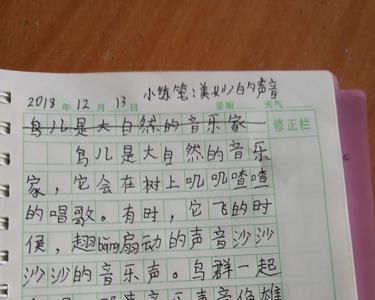 小练笔：美妙的声音
2018年12月13日 星期 天气
鸟儿是大自然的音乐家 修正栏
鸟儿是大自然的音乐
家，它会在树上叽叽喳喳
的唱歌。有时，它飞的时
候，翅bǎng扇动的声音沙沙
沙沙的音乐声。鸟群一起